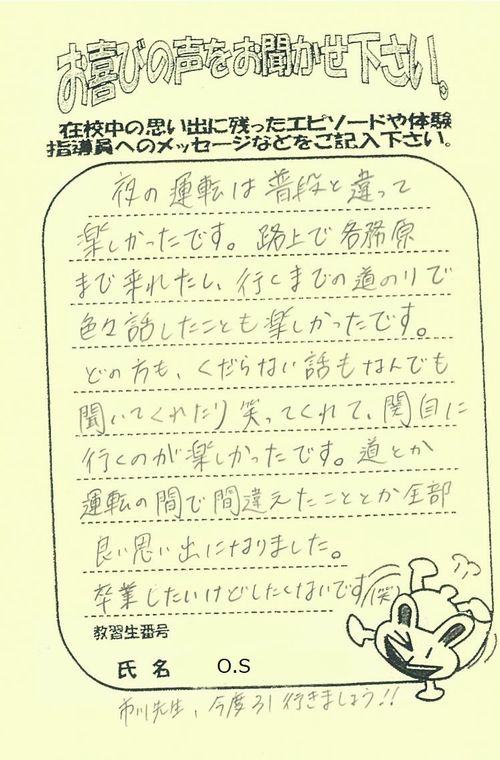 お喜びの声をお聞かせ下さい。
在校中の思い出に残ったエピソードや体験
指導員へのメッセージなどをご記入下さい。
夜の運転は普段と違って
楽しかったです。路上で各務原
まで来れたし、行くまでの道のりで
色々話したことも楽しかったです。
どの方も、くだらない話もなんでも
聞いてくれたり笑ってくれて、関自に
行くのが楽しかったです。道とか
運転の間で間違えたこととか全部
良い思い出になりました。
卒業したいけどしたくないです(笑)
教習生番号
氏名 O.S
市川先生、今度行きましょう!!